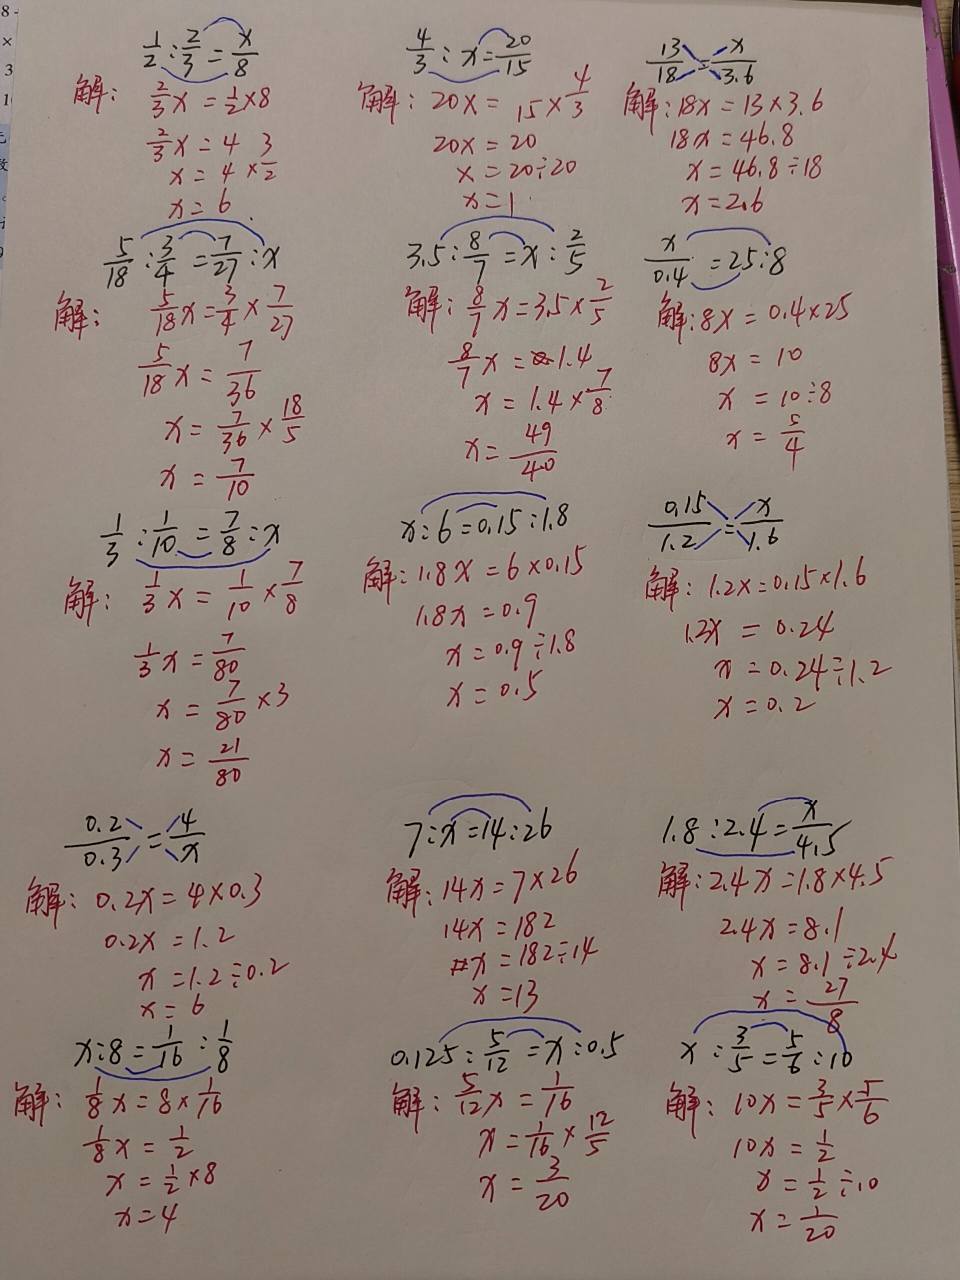 1/2 : 2/3 = x/8
解: 2/3 x = 1/2 × 8
2/3 x = 4
x = 4 × 3/2
x = 6
4/3 : x = 20/15
解: 20x = 15 × 4/3
20x = 20
x = 20÷20
x = 1
13/18 = x/3.6
解: 18x = 13 × 3.6
18x = 46.8
x = 46.8÷18
x = 2.6
5/18 : 3/4 = 7/27 : x
解: 5/18 x = 3/4 × 7/27
5/18 x = 7/36
x = 7/36 × 18/5
x = 7/10
3.5 : 8/7 = x : 2/5
解: 8/7 x = 3.5 × 2/5
8/7 x = 1.4
x = 1.4 × 7/8
x = 49/40
x/0.4 = 25:8
解: 8x = 0.4×25
8x = 10
x = 10÷8
x = 5/4
1/3 : 1/10 = 7/8 : x
解: 1/3 x = 1/10 × 7/8
1/3 x = 7/80
x = 7/80 × 3
x = 21/80
x:6 = 0.15:1.8
解: 1.8x = 6×0.15
1.8x = 0.9
x = 0.9÷1.8
x = 0.5
0.15/1.2 = x/1.6
解: 1.2x = 0.15×1.6
1.2x = 0.24
x = 0.24÷1.2
x = 0.2
0.2/0.3 = 4/x
解: 0.2x = 4×0.3
0.2x = 1.2
x = 1.2÷0.2
x = 6
7:x = 14:26
解: 14x = 7×26
14x = 182
x = 182÷14
x = 13
1.8:2.4 = x/4.5
解: 2.4x = 1.8×4.5
2.4x = 8.1
x = 8.1÷2.4
x = 27/8
x:8 = 1/16 : 1/8
解: 1/8 x = 8 × 1/16
1/8 x = 1/2
x = 1/2 × 8
x = 4
0.125 : 5/12 = x : 0.5
解: 5/12 x = 1/16
x = 1/16 × 12/5
x = 3/20
x : 3/5 = 5/6 : 10
解: 10x = 3/5 × 5/6
10x = 1/2
x = 1/2 ÷10
x = 1/20